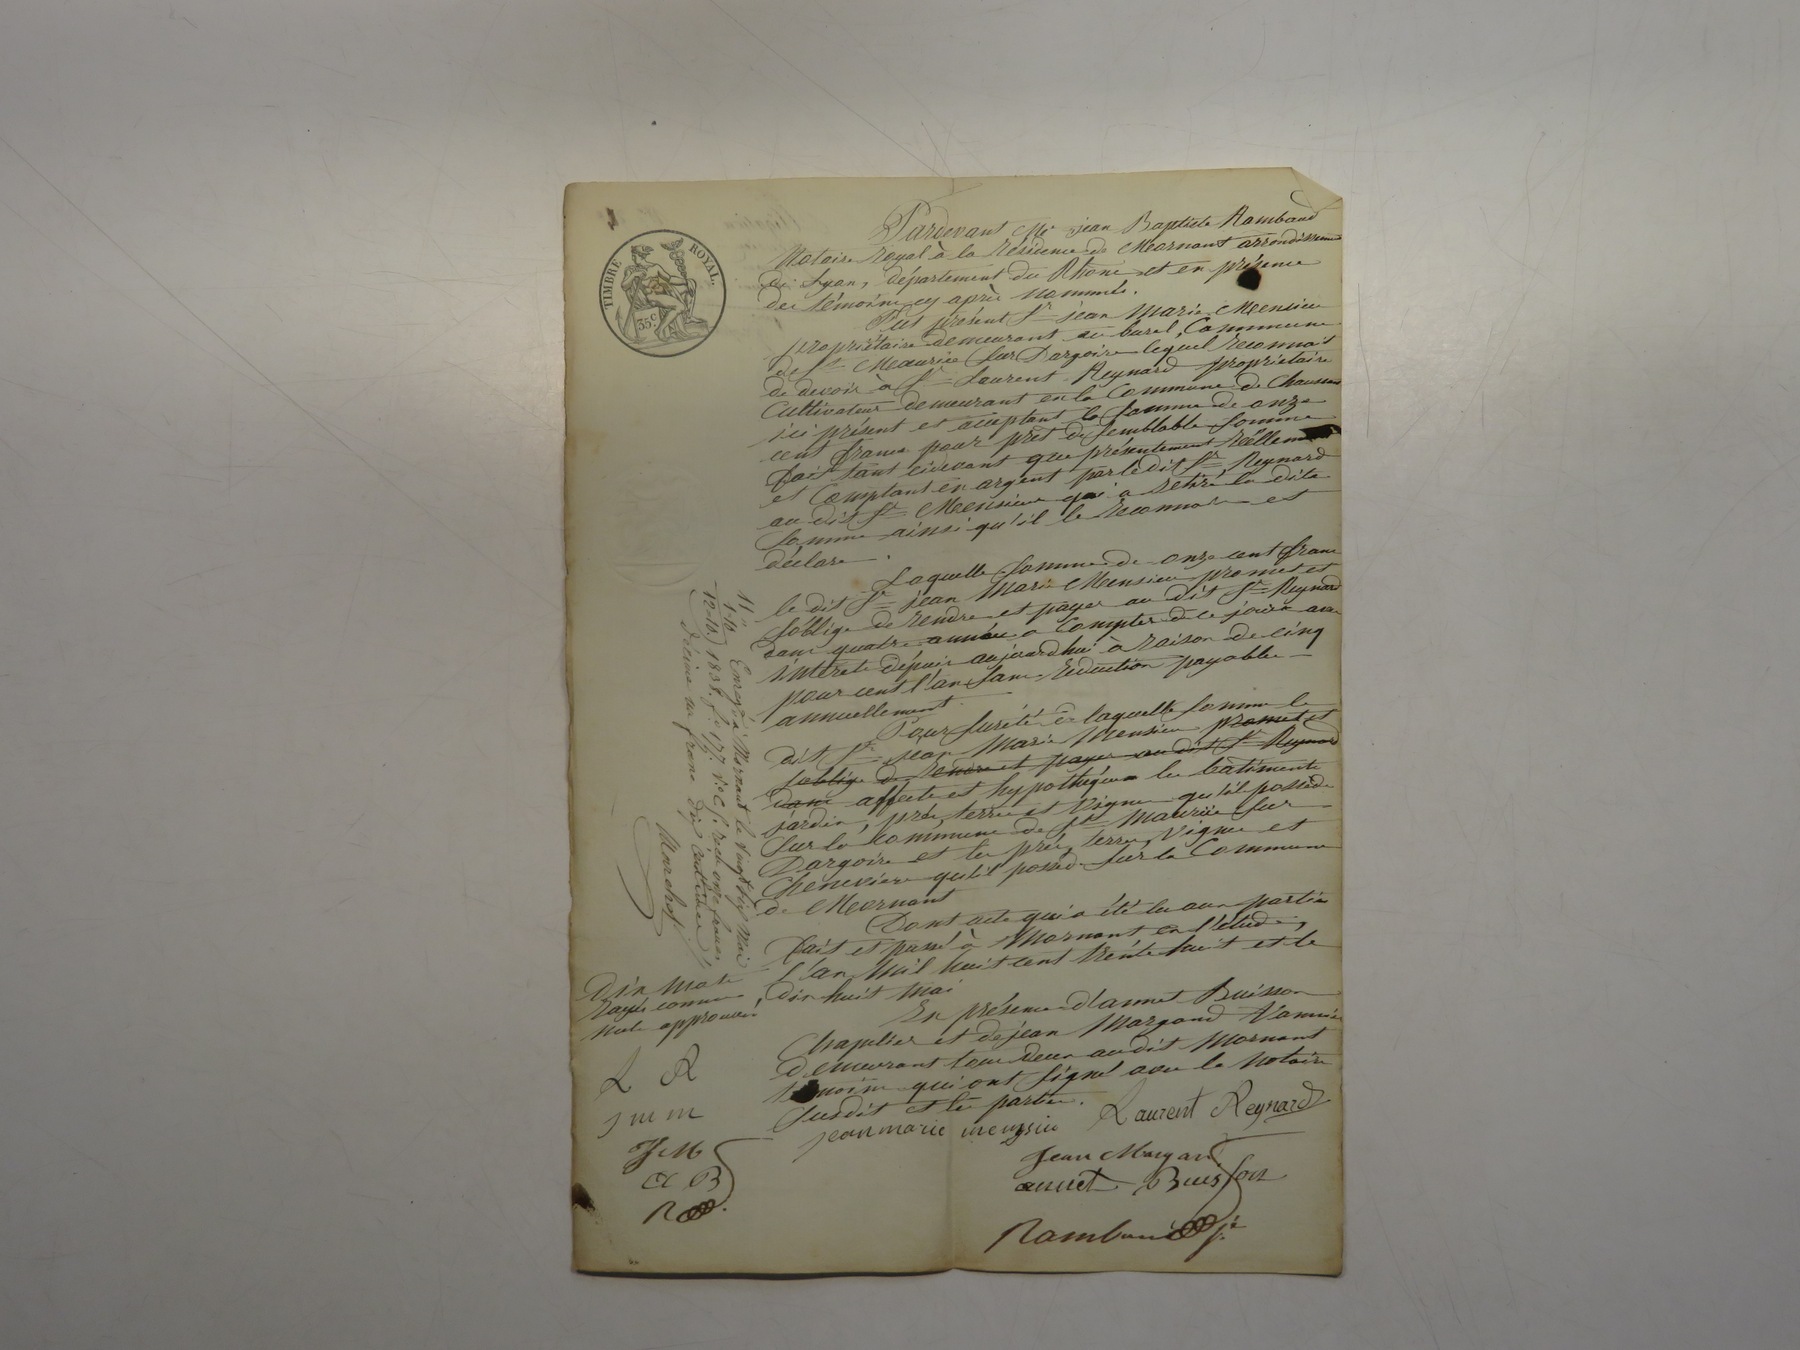 TIMBRE ROYAL.
35 c.
Pardevant Me jean Baptiste Rambaud
Notaire Royal à la Résidence de Mornant arrondissement
de Lyon, département du Rhône et en présence
des témoins cy après nommés.
Fut présent Sr jean Marie Mensieu
propriétaire demeurant au burel, Commune
de St Maurice sur Dargoire lequel reconnait
de devoir à Sr Laurent Reynard propriétaire
Cultivateur demeurant en la Commune de Chaussan
ici présent et acceptant la somme de onze
cent francs pour prêt de semblable somme
fait tant cidevant que présentement réellement
et Comptant en argent par le dit Sr Reynard
au dit Sr Mensieu qui a retiré la dite
somme ainsi qu'il le reconnait et
déclare.
Laquelle somme de onze cent francs
le dit Sr jean Marie Mensieu promet et
s'oblige de rendre et payer au dit Sr Reynard
dans quatre années a Compter de ce jour avec
intérêts depuis aujourdhui à raison de cinq
pour cent l'an sans réduction payable
annuellement.
Pour sureté de laquelle somme le
dit Sr jean Marie Mensieu promet et
s'oblige de rendre et payer au dit Sr Reynard
dans affecte et hypothéque les batiments
jardin, prés, terres et vignes qu'il possède
sur la Commune de St Maurice sur
Dargoire et les prés, terres, vignes et
Chenevière qu'il possède sur la Commune
de Mornant
Dont acte qui a été lu aux parties
fait et passé à Mornant en l'étude,
l'an Mil huit cent trente huit et le
dix huit mai
En présence d'annet Buisson
Chapelier et de jean Margand Vannier
demeurant tous deux au dit Mornant
témoins qui ont signé avec le notaire
susdit et les parties.
jean marie mensieu Laurent Reynard
Jean Margand
annet Buisson
Rambaud
11"
1.10
12.10
Enregé à Mornant le vingt six Mai
1838. fo 177. Vo C. Reçu onze francs
décime un franc dix centimes
Dix mots
rayés comme
nuls approuvés
L R
J m m
J M
a B
R